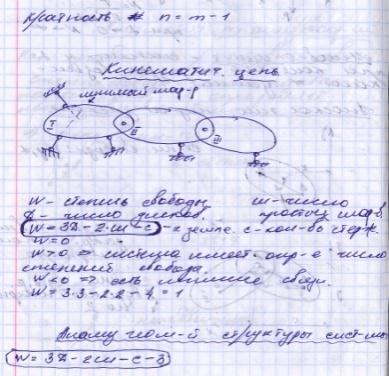 Кратность n = m - 1
Кинематич. цепь
лишний шар-р
I II III
W - степень свободы ш - число
Д - число дисков. простых шар.
W = 3Д - 2·ш - с к земле. с - кол-во стерж.
W = 0
W > 0 => система имеет опр-е число
степеней свобода.
W < 0 => есть лишние связи.
W = 3·3 - 2·2 - 4 = 1
геом-й структуры сист-мы
W = 3Д - 2ш - с - 3